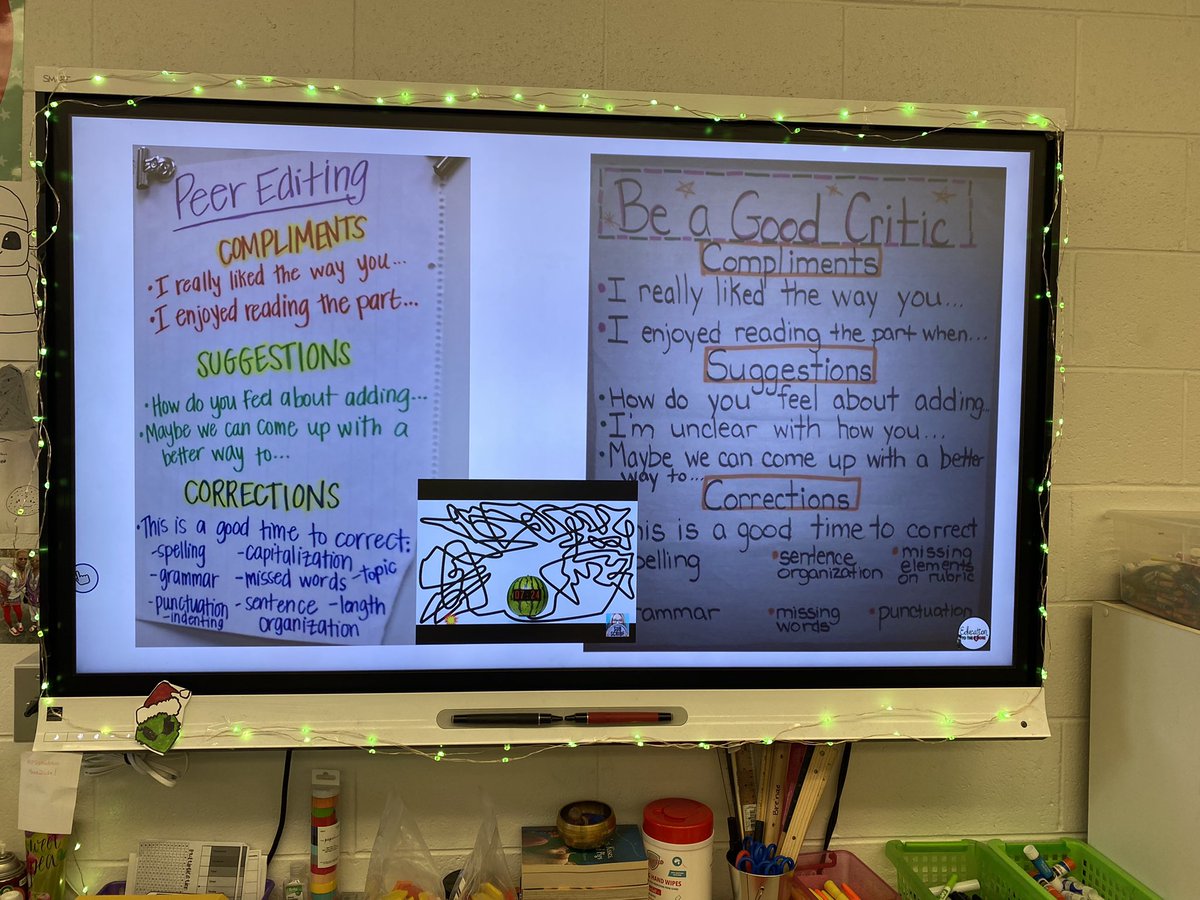 SMART
Peer Editing
COMPLIMENTS
•I really liked the way you...
•I enjoyed reading the part...
SUGGESTIONS
•How do you feel about adding...
•Maybe we can come up with a
better way to...
CORRECTIONS
•This is a good time to correct:
-spelling -capitalization
-grammar -missed words -topic
-punctuation -sentence -length
-indenting organization
Be a Good Critic
Compliments
•I really liked the way you...
•I enjoyed reading the part when...
Suggestions
•How do you feel about adding...
•I'm unclear with how you...
•Maybe we can come up with a better
way to...
Corrections
his is a good time to correct
pelling •sentence •missing
organization elements
on rubric
rammar •missing •punctuation
words
02:24
Education
TO THE CORE
HAND WIPES